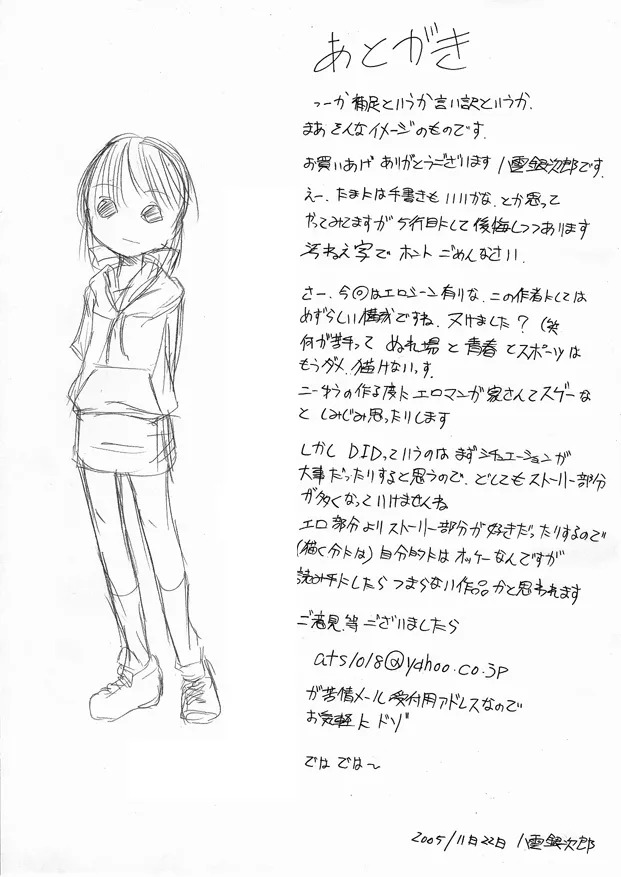 あとがき
つーか補足というか言い訳というか.
まあそんなイメージのものです.
お買いあげ ありがとうございます 八雲銀次郎です.
えー. たまには手書きもいいかな. とか思って
やってみてますが 5行目にして後悔しつつあります
汚ねえ字で ホント ごめんなさい.
さー. 今回はエロシーン有りな. この作者としては
めずらしい構成ですね. 又けました? (笑
何が苦手って ぬれ場と青春とスポーツは
もうダメ. 描けないっす.
こーゆうの作る度に エロマンガ家さんてスゲーな
と しみじみ思ったりします
しかし DIDっていうのは まずシチュエーションが
大事だったりすると思うので. どしてもストーリー部分
が多くなっていけませんね
エロ部分よりストーリー部分が好きだったりするので
(描く分には) 自分的にはオッケーなんですが
読み手にしたら つまらない作品かと思われます
ご意見.等ございましたら
ats1018@yahoo.co.jp
が苦情メール受付用アドレスなので
お気軽にドゾ
では では〜
2005/11月22日 八雲銀次郎